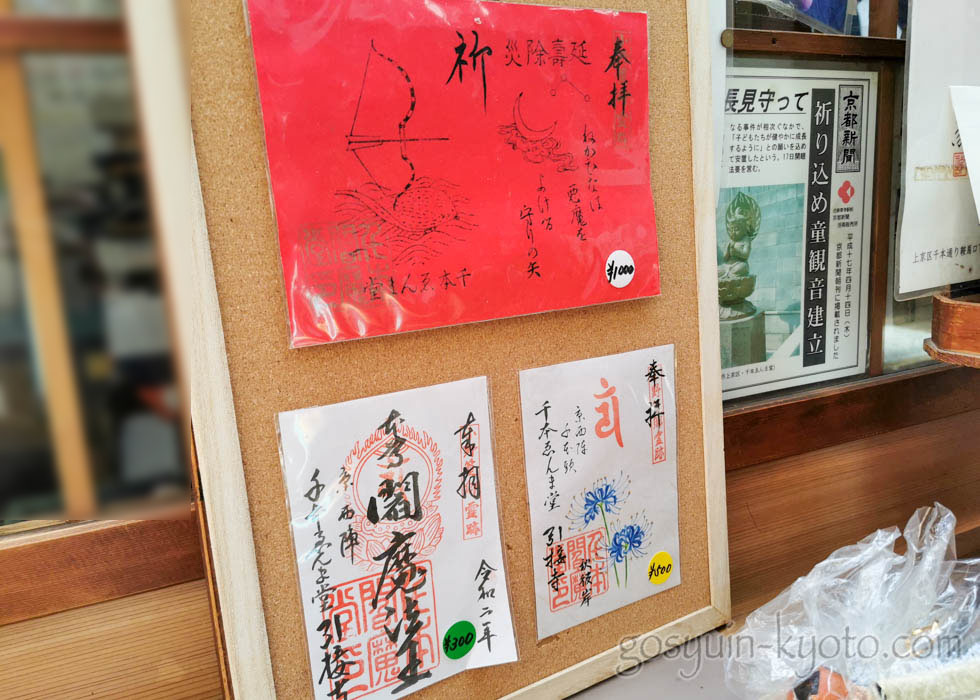 奉拝
延壽除災
祈
ねがひなは
悪魔を
よける
守りの矢
千本ゑんま堂
¥1000
奉拝
令和二年
奉
閻魔法王
京西陣
千本ゑんま堂
引接寺
¥300
奉拝
京西陣
千本頭
千本ゑんま堂
引接寺
秋彼岸
¥500
京都新聞
祈り込め童観音建立
長見守って
なる事件が相次ぐなかで、
「子どもたちが健やかに成長
するように」との願いを込め
て安置したという。17日開眼
法要を営む。
平成十七年四月十四日(木)
京都新聞朝刊に掲載されました
市上京区・千本ゑんま堂)
上京区千本通り鞍馬口
gosyuin-kyoto.com